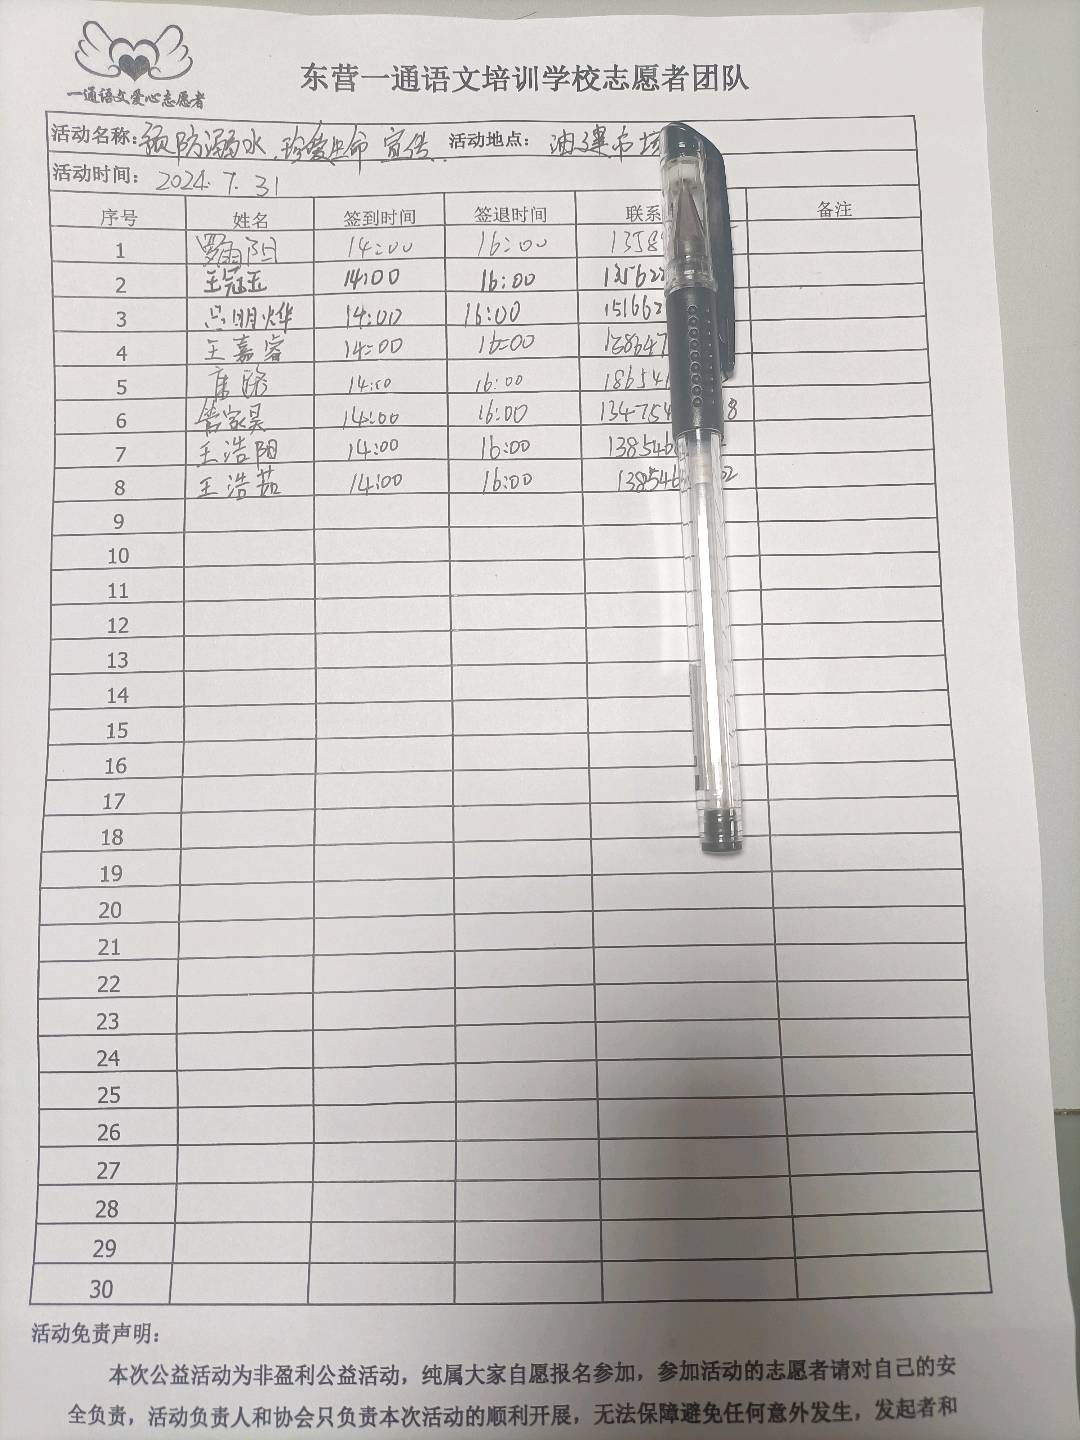 一通语文爱心志愿者
东营一通语文培训学校志愿者团队
活动名称：预防溺水.珍爱生命 宣传 活动地点： 油建市场
活动时间： 2024.7.31
序号 姓名 签到时间 签退时间 联系 备注
1 罗雨阳 14:00 16:00 1358
2 王冠玉 14:00 16:00 135622
3 吕明烨 14:00 16:00 151662
4 王嘉睿 14:00 16:00 158647
5 14:00 16:00 186541
6 曹家昊 14:00 16:00 134754 8
7 王浩阳 14:00 16:00 138546
8 王浩茹 14:00 16:00 138546 02
9
10
11
12
13
14
15
16
17
18
19
20
21
22
23
24
25
26
27
28
29
30
活动免责声明：
本次公益活动为非盈利公益活动，纯属大家自愿报名参加，参加活动的志愿者请对自己的安
全负责，活动负责人和协会只负责本次活动的顺利开展，无法保障避免任何意外发生，发起者和